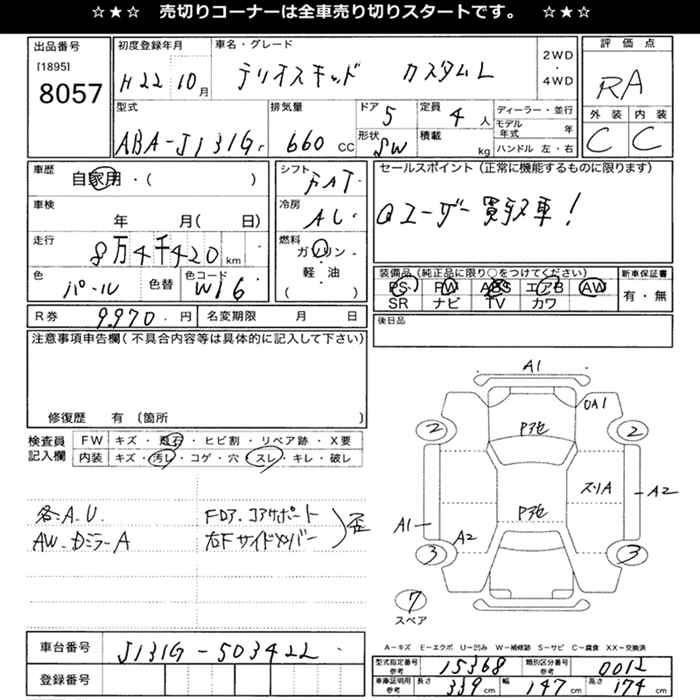 ☆★☆ 売切りコーナーは全車売り切りスタートです。 ☆★☆
出品番号
[1895]
8057
初度登録年月
H22 10月
車名・グレード
テリオスキッド カスタムL
2WD
・
4WD
評価点
RA
外装 内装
C C
型式
ABA-J131G
排気量
660 CC
ドア 5
形状 SW
定員 4 人
積載 kg
ディーラー・並行
モデル年式 年
ハンドル 左・右
車歴
自家用・( )
車検
年 月( 日)
走行
8万4千420 km
色
パール
色替
色コード
W16
シフト
FAT
冷房
AC
燃料
ガソリン・
軽油
( )
セールスポイント(正常に機能するものに限ります)
ユーザー買取車!
装備品(純正品に限り○をつけてください)
PS PW ABS エアB AW
SR ナビ TV カワ
新車保証書
有・無
R券 9,970 円
名変期限 月 日
後日品
注意事項申告欄(不具合内容等は具体的に記入して下さい)
修復歴 有 (箇所 )
検査員
記入欄
FW キズ・飛石・ヒビ割・リペア跡・X要
内装 キズ・汚レ・コゲ・穴・スレ・キレ・破レ
各A.U.
AW.Dミラー A
Fロア.コアサポート
右Fサイドメンバー
歪
A1
UA1
2 2
Pアセ
スリA
A2
Pアセ
A1
A2
3 3
7
スペア
A-キズ E-エクボ U-凹み W-補修跡 S-サビ C-腐食 XX-交換済
車台番号
J131G-503422
登録番号
型式指定番号
参考
15368
類別区分番号
参考
0012
車庫証明用
参考
長さ 339 cm
幅 147 cm
高さ 174 cm